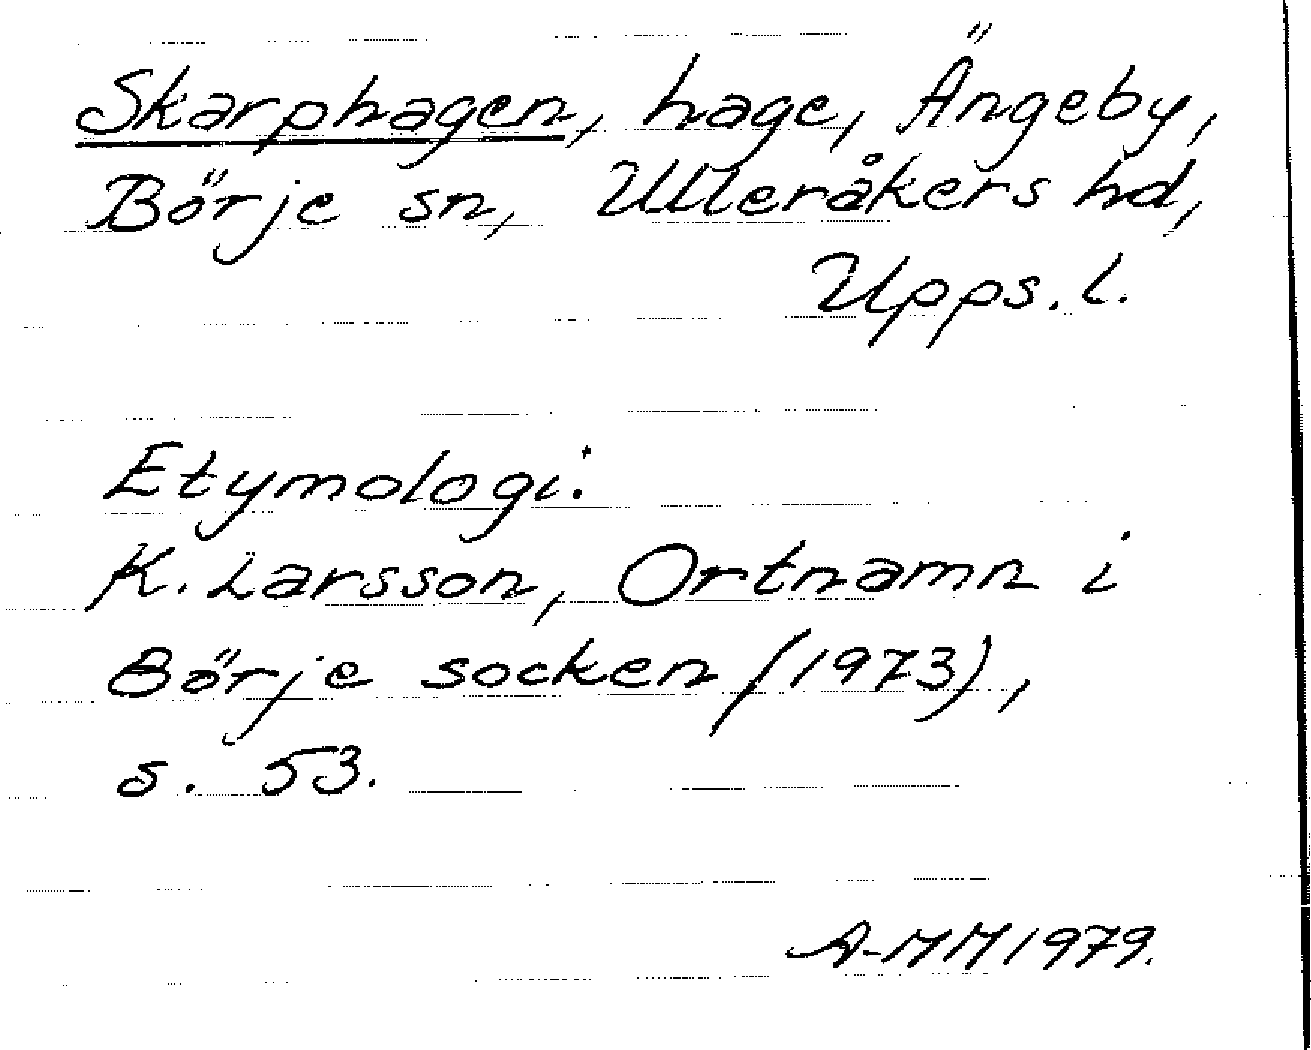 Skarphagen, hage, Ängeby,
Börje sn, Ulleråkers hd,
Upps. l.
Etymologi:
K. Larsson, Ortnamn i
Börje socken (1973),
s. 53.
A-MM 1979.